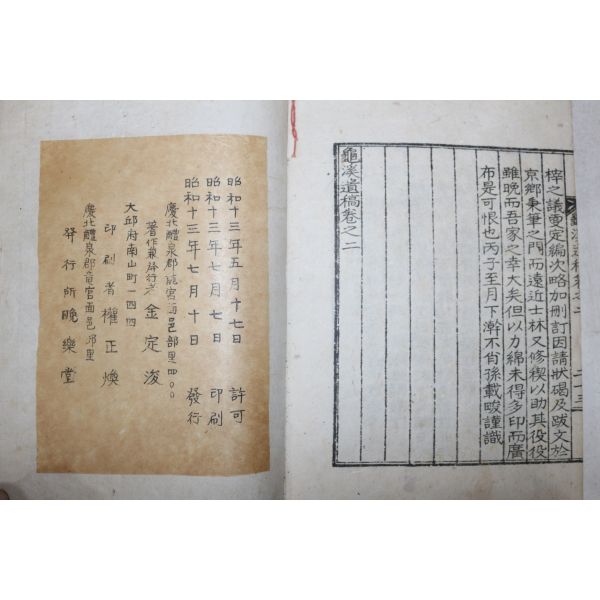 梓之議更定編次略加刪訂因請狀碣及跋文於
京鄉秉筆之門而遠近士林又修稧以助其役役
雖晚而吾家之幸大矣但以力綿未得多印而廣
布是可恨也丙子至月下澣不肖孫載晙謹識
龜溪遺稿卷之二
龜溪遺稿卷之二
二十三
昭和十三年五月十七日 許可
昭和十三年七月七日 印刷
昭和十三年七月十日 發行
慶北醴泉郡龍宮面邑部里四〇〇
著作兼發行者 金定浚
大邱府南山町一四四
印刷者 權正煥
慶北醴泉郡龍宮面邑部里
發行所 晩樂堂